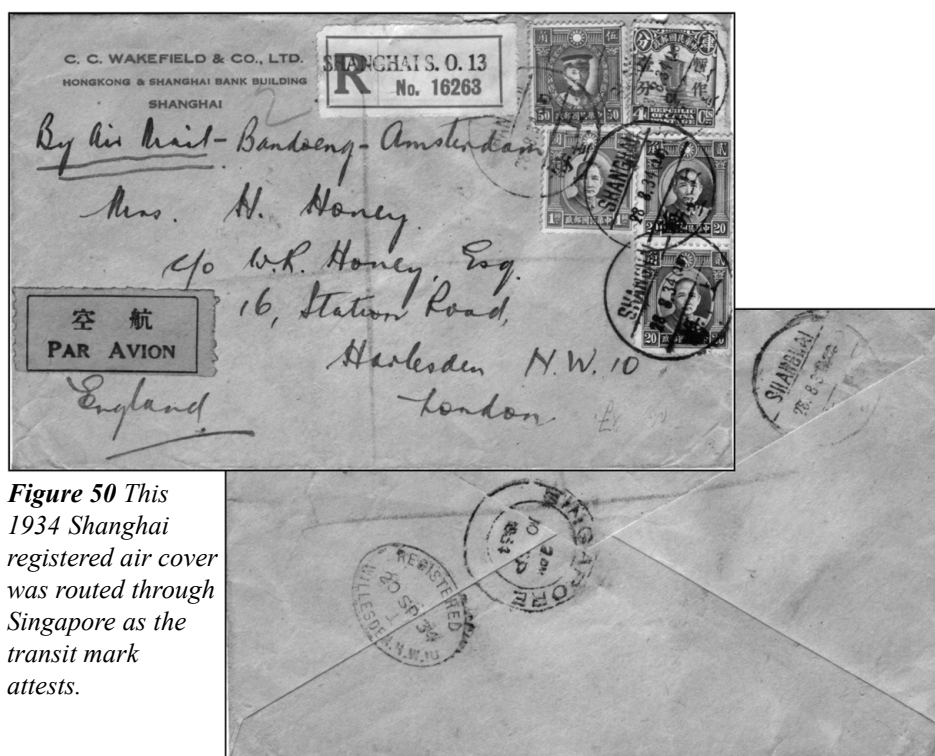 C. C. WAKEFIELD & CO., LTD.
HONGKONG & SHANGHAI BANK BUILDING
SHANGHAI
R
SHANGHAI S. O. 13
No. 16263
伍
50 50
暫作
壹分
REPUBLIC
OF CHINA
POSTAGE
4 Cs
By Air Mail - Bandoeng - Amsterdam
Mrs. H. Honey
c/o W.R. Honey, Esq.
16, Station Road,
Harlesden N.W. 10
London
England
空航
PAR AVION
1 1
20 20
SHANGHAI
28 8.34
20 20
SHANGHAI
28 8.34
SHANGHAI
28. 8.3
SINGAPORE
10
1934
REGISTERED
20 SP 34
WILLESDEN N.W.10
Figure 50 This
1934 Shanghai
registered air cover
was routed through
Singapore as the
transit mark
attests.